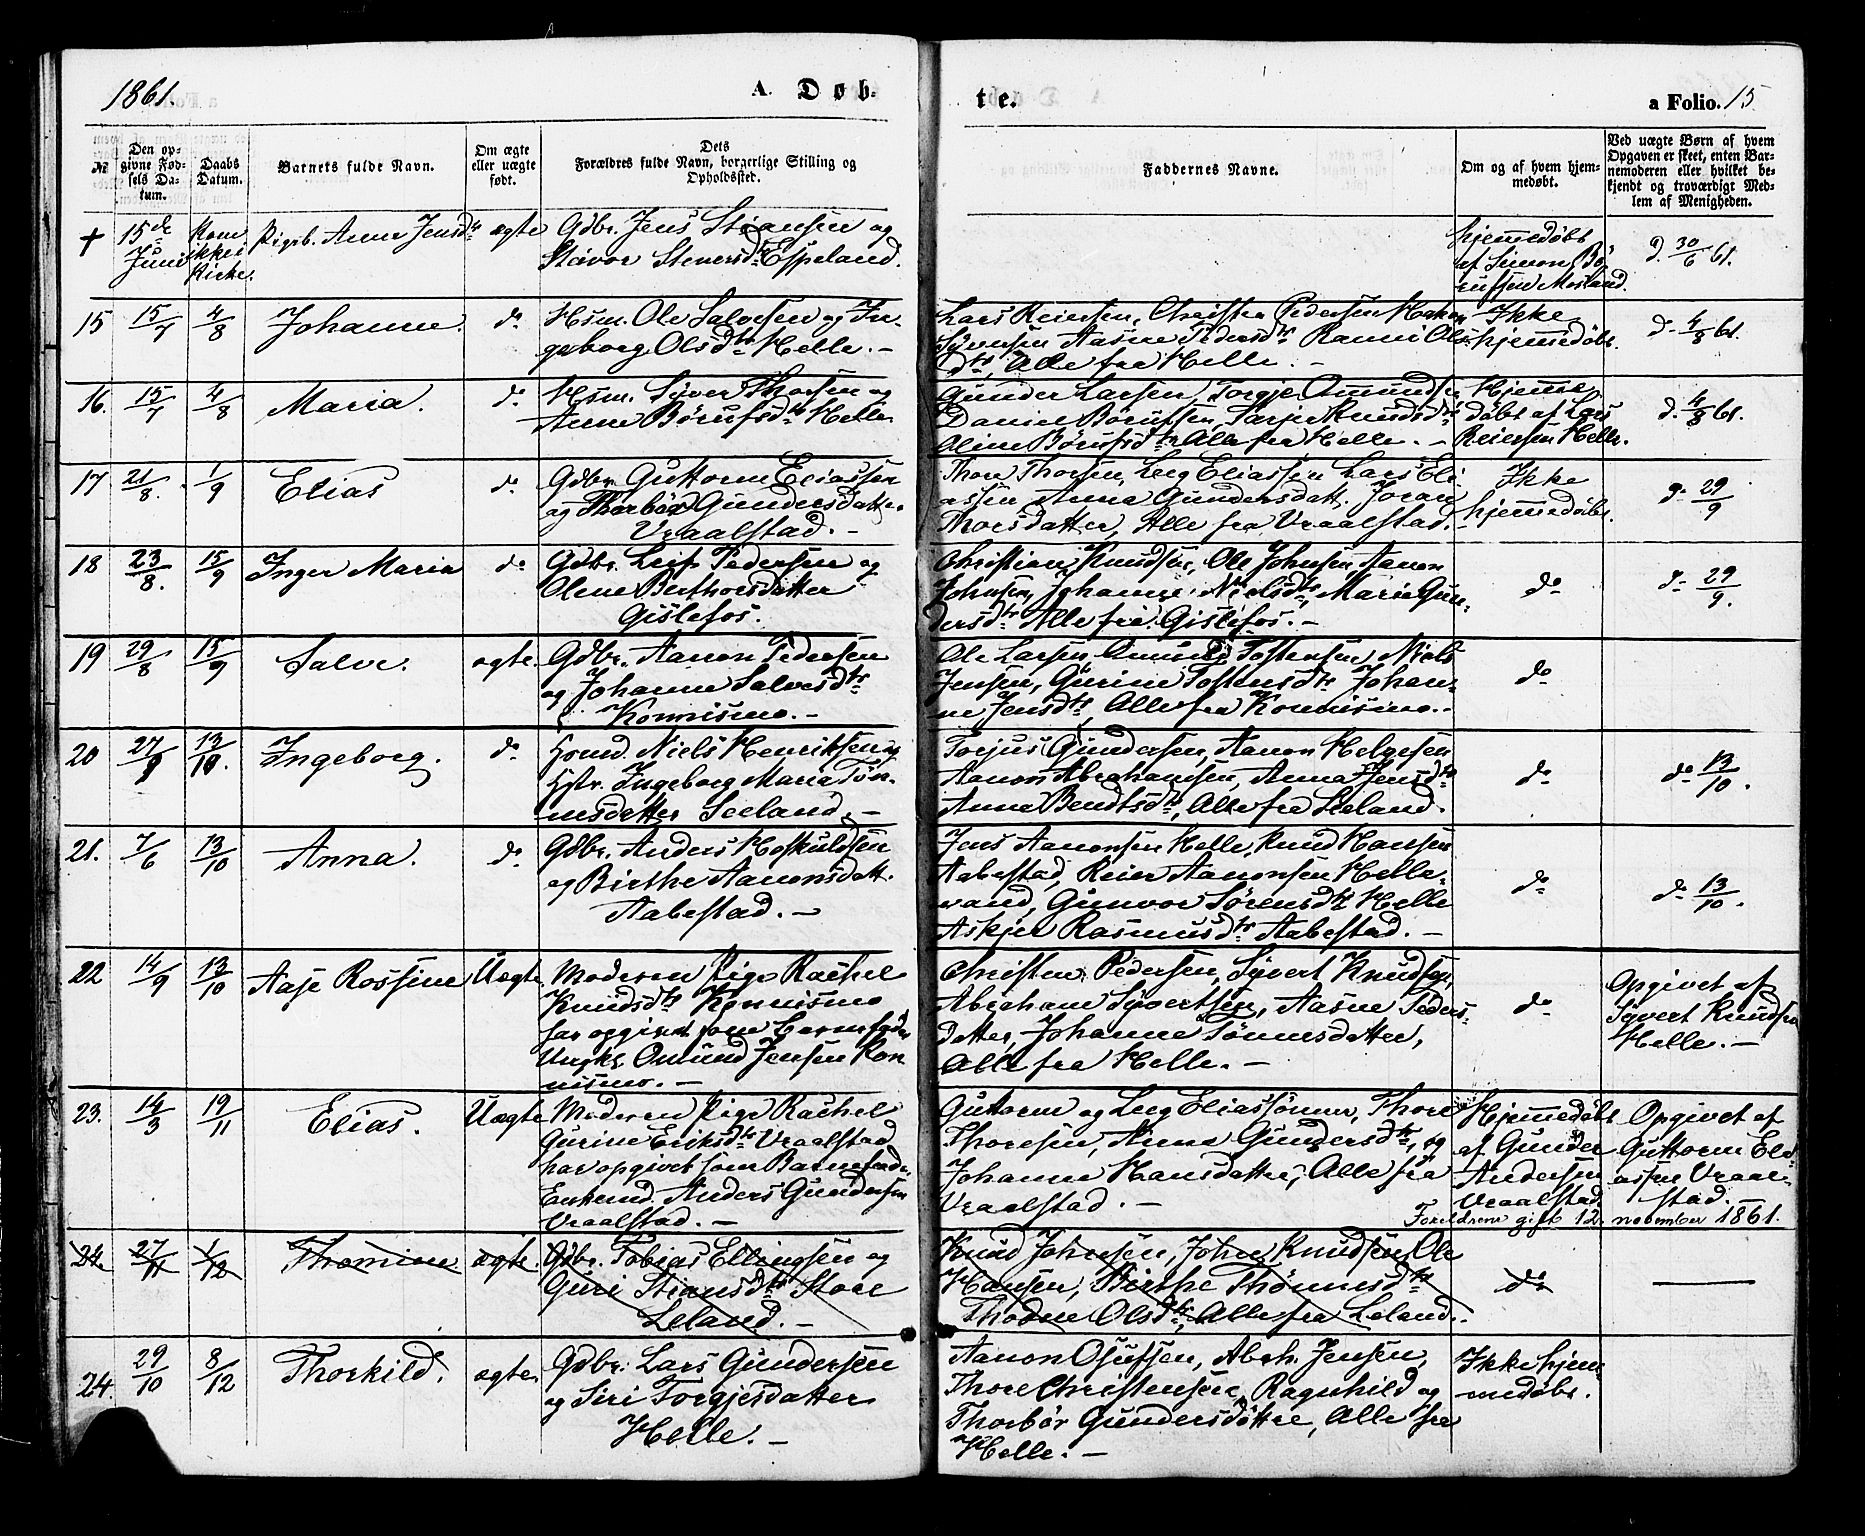 1861.
A. Døb-
te.
a Folio. 15.
№
Den op-
givne Fød-
sels Da-
tum.
Daabs
Datum.
Barnets fulde Navn.
Om ægte
eller uægte
født.
Dets
Forældres fulde Navn, borgerlige Stilling og
Opholdssted.
Faddernes Navne.
Om og af hvem hjem-
medøbt.
Ved uægte Børn af hvem
Opgaven er skeet, enten Bar-
nemoderen eller hvilket be-
kjendt og troværdigt Med-
lem af Menigheden.
+
15de
Juni
Kom
ikke i
Kirke.
Pigeb. Anne Jensdtr
ægte
Gdbr. Jens Stiansen og
Stenersdtr Espeland.
Hjemmedøbt
af Simon Bø-
rufsen Mosland.
d. 30/6 61.
15
15/7
4/8
Johanne.
do
Husm. Ole Salvesen og In-
geborg Olsdtr Helle. —
Lars Reiersen, Christen Pedersen Haakon
Syversen Aasne Pedersdtr Ranni Ols-
dtr, Alle fra Helle. —
Ikke
hjemmedøbt.
d. 4/8 61.
16.
15/7
4/8
Maria.
do
Husm. Syver Thorsen og
Anne Børufsdtr Helle
Gunder Larsen, Torgje Omundsen,
Daniel Børufsen, Knudsdtr,
Oline Børufsdtr, Alle fra Helle. —
Hjemme
døbt af Lars
Reiersen Helle.
d. 4/8 61.
17
21/8.
1/9
Elias
do
Gdbr. Guttorm Eliassen
og Thorbør Gundersdatter
Vraalstad. —
Thore Thorsen, Leeg Eliassen Lars Eli-
assen Anna Gundersdatt. Joran
Thorsdatter, Alle fra Vraalstad. —
Ikke
hjemmedøbt.
d. 29/9
18
23/8.
15/9
Inger Maria
do
Gdbr. Leif Pedersen og
Olene Berthorsdatter
Gislefos.
Christian Knudsen, Ole Johnsen Aanon
Johnsen, Johanne Nielsdtr, Marie Gun-
dersdtr Alle fra Gislefos. —
do
d. 29/9.
19
29/8
15/9
Salve.
ægte.
Gdbr. Aanon Pedersen
og Johanne Salvesdtr
Konnismo. —
Ole Larsen Omund Tostensen, Niels
Jensen, Gurine Tostensdtr Johan-
ne Jensdtr, Alle fra Konnismo. —
do
20
27/9
13/10.
Ingeborg.
do
Niels Henriksen og
Hstr. Ingeborg Maria Tøn-
nesdatter Leeland. —
Torjus Gundersen, Aanon Helgesen
Aanon Abrahamsen, Anna Jensdtr
Anne Bendtsdtr, Alle fra Leeland.
do
do 13/10.
21.
7/6
13/10
Anna.
do
Gdbr. Anders Hoskuldsen
og Birthe Aanonsdatt.
Aabestad. —
Jens Aanonsen Helle, Knud Hansen
Aabestad, Reier Aanonsen Helle-
vand, Gunvor Sørensdtr Helle
Askjer Rasmusdtr Aabestad. —
do
do 13/10.
22
14/9
13/10
Aase Rossine
Uægte
Moderen Pige Rachel
Knudsdtr Konnismo
har opgivet som Barnefader
Ungkl. Omund Jensen Kon-
nismo. —
Christen Pedersen, Syvert Knudsen,
Abraham Syvertsen, Aasne Peders-
datter, Johanne Tønnesdatter,
Alle fra Helle. —
do
Opgivet af
Syvert Knudsen
Helle. —
23.
14/3
19/11
Elias.
Uægte
Moderen Pige Rachel
Gurine Eriksdtr Vraalstad
har opgivet som Barnefader,
Enkemd. Anders Gundersen
Vraalstad. —
Guttorm og Leeg Eliassønner, Thore
Thoresen, Anna Gundersdtr, og
Johanne Hansdatter, Alle fra
Vraalstad. —
Hjemmedøbt
af Gunder
Andersen
Vraalstad
Opgivet af
Guttorm Eli-
assen Vraal-
stad.
Forældrene gift 12 november 1861.
24.
27/11
1/12
Thomine
ægte.
Gdbr. Tobias Ellingsen og
Guri Stiansdtr Store
Leland. —
Knud Johnsen, John Knudsen, Ole
Hansen, Birthe Thønnesdtr
Thodne Olsdtr, Alle fra Leland.
do
—
24.
29/10
8/12
Thorkild.
ægte
Gdbr. Lars Gundersen
og Siri Torgjesdatter
Helle. —
Aanon Osufsen, Abrh. Jensen,
Thore Christensen, Ragnhild og
Thorbør Gundersdøttre, Alle fra
Helle. —
Ikke hjem-
medøbt.